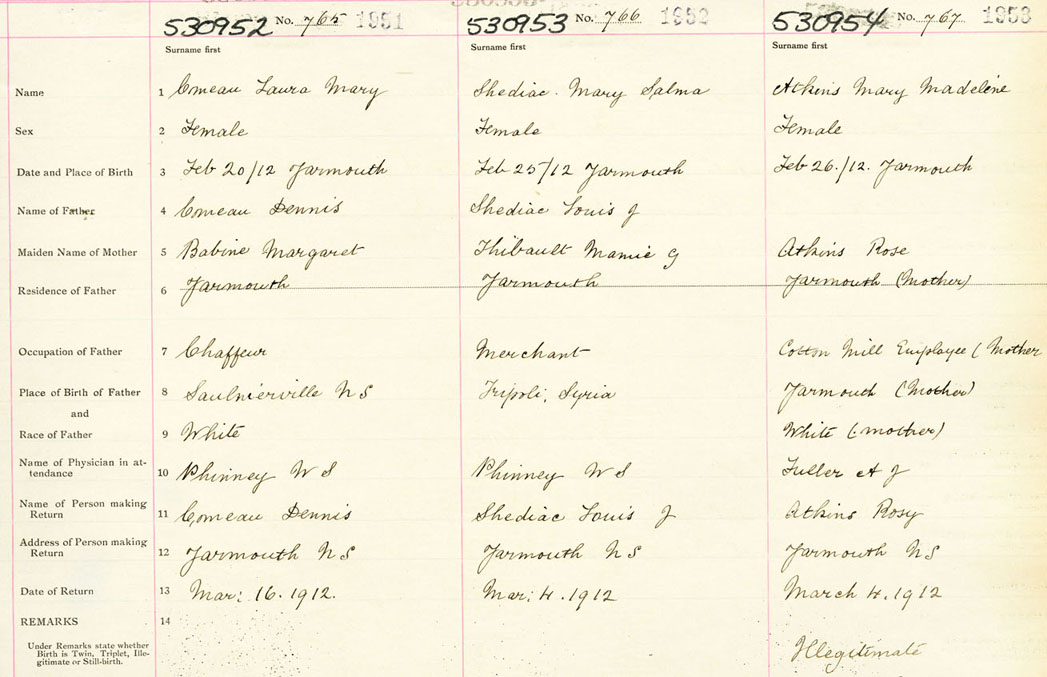 530952 No. 765 1951 530953 No. 766 1952 530954 No. 767 1953
Surname first Surname first Surname first
Name 1 Comeau Laura Mary Shediac. Mary Salma Atkins Mary Madelene
Sex 2 Female Female Female
Date and Place of Birth 3 Feb 20/12 Yarmouth Feb 25/12 Yarmouth Feb 26./12. Yarmouth
Name of Father 4 Comeau Dennis Shediac Louis J
Maiden Name of Mother 5 Babine Margaret Thibault Mamie G Atkins Rose
Residence of Father 6 Yarmouth Yarmouth Yarmouth (Mother)
Occupation of Father 7 Chaffeur Merchant Cotton Mill Employee (Mother
Place of Birth of Father 8 Saulnierville N S Tripoli, Syria Yarmouth (Mother)
and
Race of Father 9 White White (mother)
Name of Physician in at-
tendance 10 Phinney W S Phinney W S Fuller A J
Name of Person making
Return 11 Comeau Dennis Shediac Louis J Atkins Rosy
Address of Person making
Return 12 Yarmouth N S Yarmouth N S Yarmouth N S
Date of Return 13 Mar: 16. 1912. Mar: 4. 1912 March 4. 1912
REMARKS 14
Under Remarks state whether
Birth is Twin, Triplet, Ille-
gitimate or Still-birth. Illegitimate